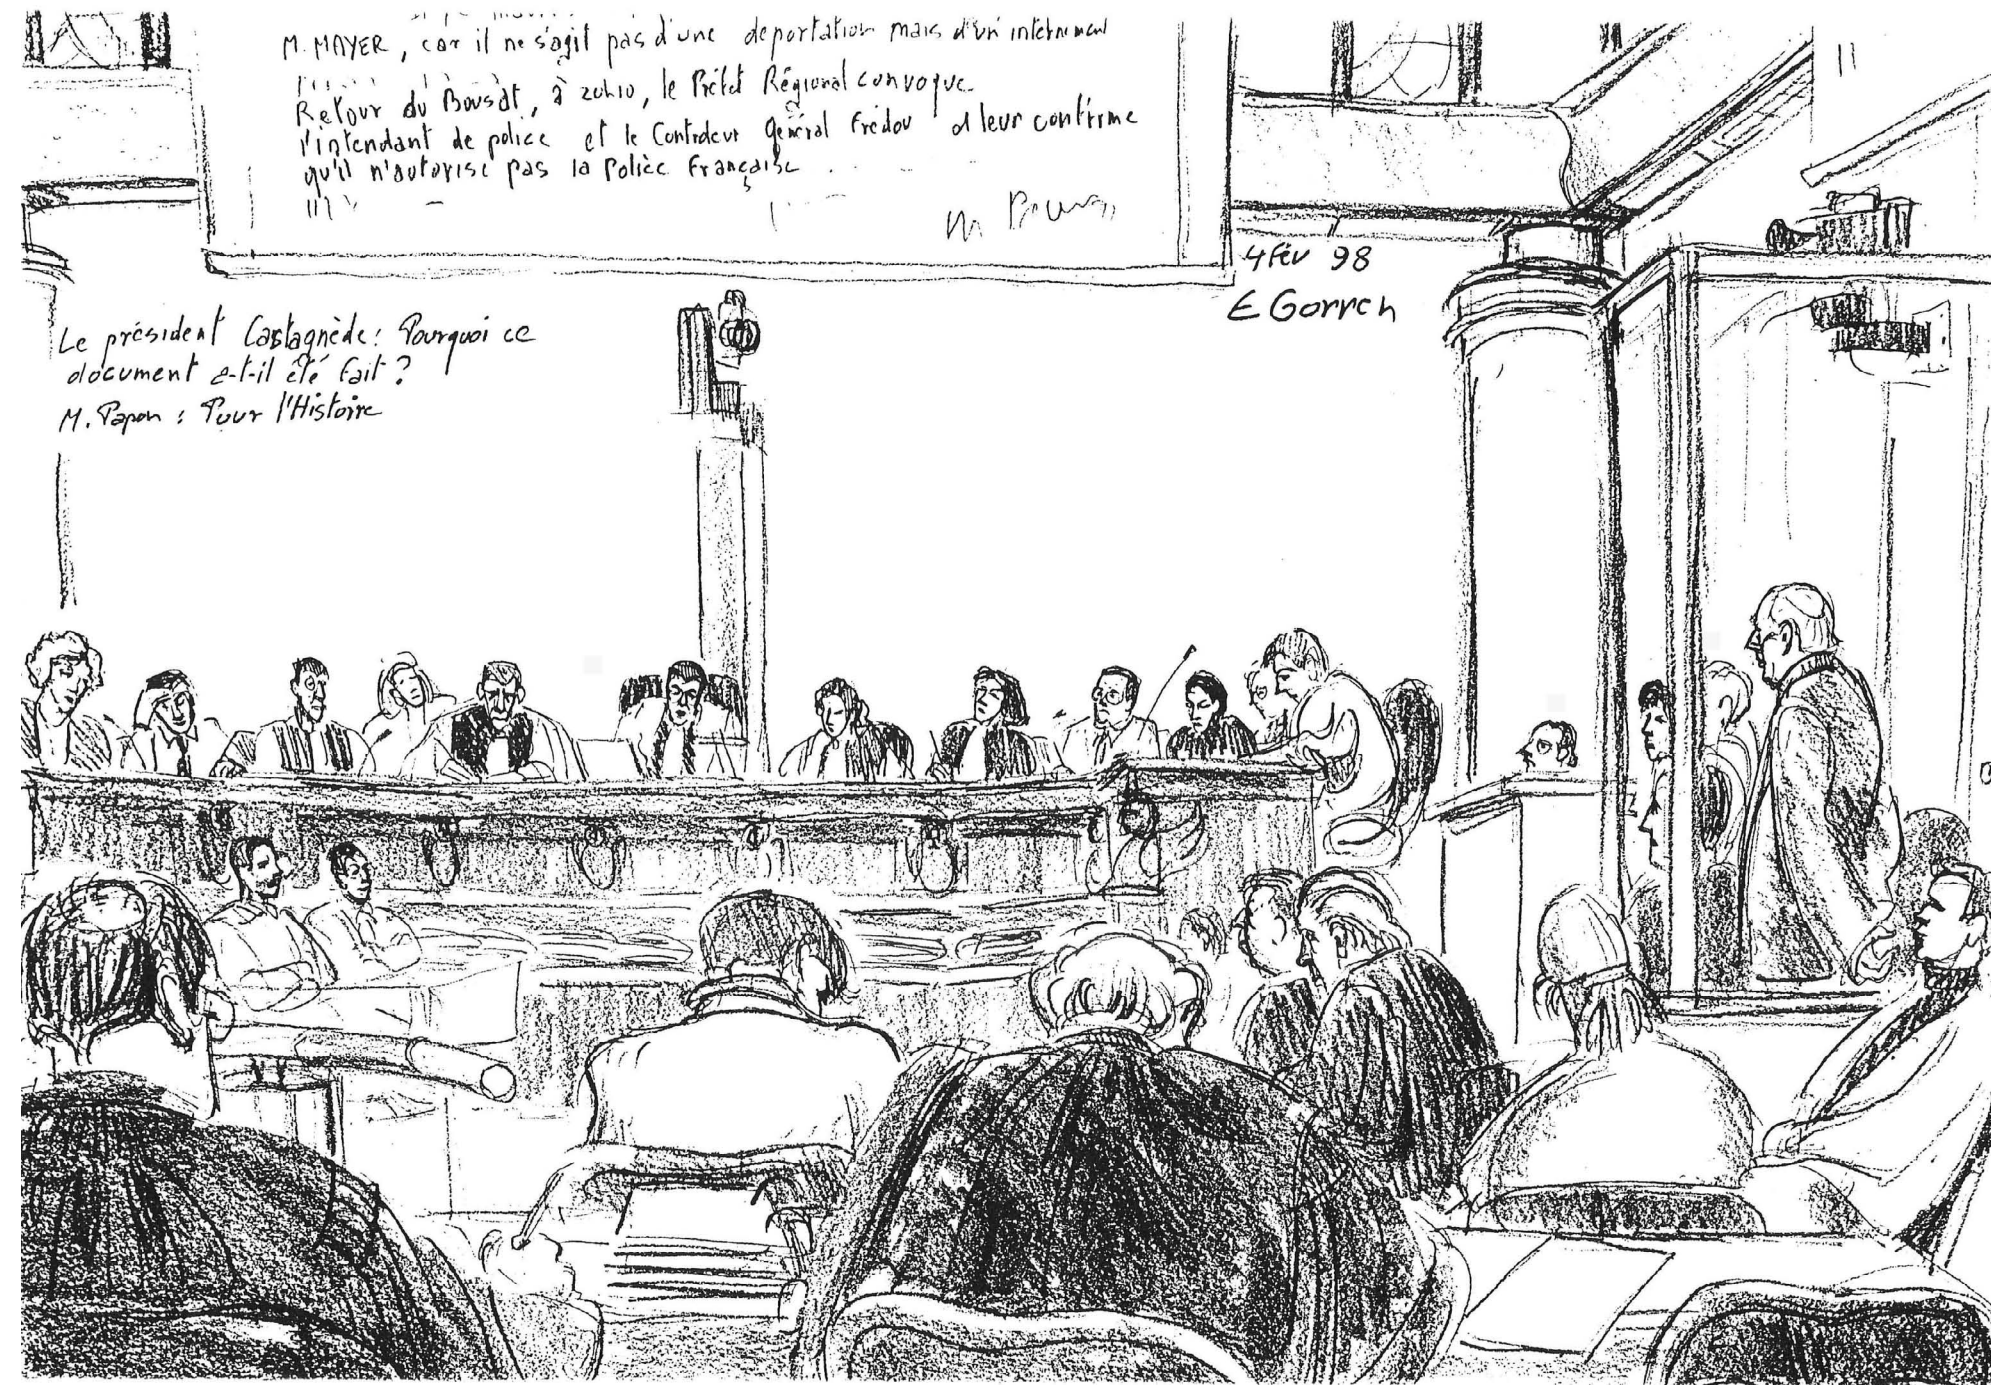 M. MAYER, car il ne s'agit pas d'une deportation mais d'un internement
Retour du Bousat, à 20h10, le Préfet Régional convoque
l'intendant de police et le Controleur Général Frédou et leur confirme
qu'il n'autorise pas la Police Française
4 Fév 98
E Gorren
Le président Castagnède : Pourquoi ce
document a-t-il été fait ?
M. Papon : Pour l'Histoire